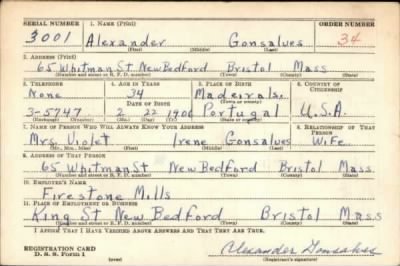 SERIAL NUMBER 1. NAME (Print) ORDER NUMBER
3001 Alexander Gonsalves 34
(First) (Middle) (Last)
2. ADDRESS (Print)
65 Whitman St New Bedford Bristol Mass
(Number and street or R. F. D. number) (Town) (County) (State)
3. TELEPHONE 4. AGE IN YEARS 5. PLACE OF BIRTH 6. COUNTRY OF CITIZENSHIP
None 34 Madeira Is.
(Town or county)
DATE OF BIRTH
3-5747 2 22 1906 Portugal U.S.A.
(Exchange) (Number) (Mo.) (Day) (Yr.) (State or country)
7. NAME OF PERSON WHO WILL ALWAYS KNOW YOUR ADDRESS 8. RELATIONSHIP OF THAT PERSON
Mrs Violet Irene Gonsalves Wife
(Mr., Mrs., Miss) (First) (Middle) (Last)
9. ADDRESS OF THAT PERSON
65 Whitman St New Bedford Bristol Mass
(Number and street or R. F. D. number) (Town) (County) (State)
10. EMPLOYER'S NAME
Firestone Mills
11. PLACE OF EMPLOYMENT OR BUSINESS
King St New Bedford Bristol Mass
(Number and street or R. F. D. number) (Town) (County) (State)
I AFFIRM THAT I HAVE VERIFIED ABOVE ANSWERS AND THAT THEY ARE TRUE.
REGISTRATION CARD
D. S. S. Form 1 (over) Alexander Gonsalves
(Registrant's signature)